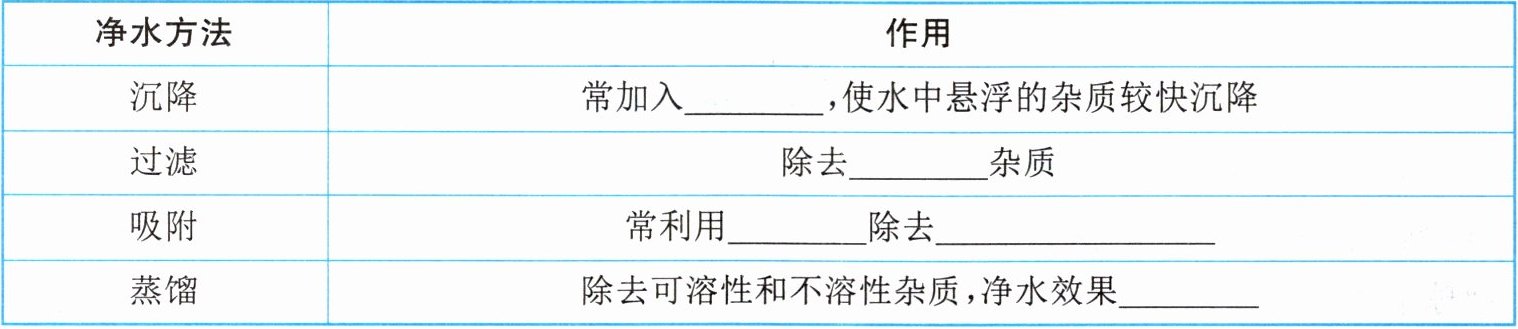 净水方法 作用
沉降 常加入________,使水中悬浮的杂质较快沉降
过滤 除去________杂质
吸附 常利用________除去________________
蒸馏 除去可溶性和不溶性杂质,净水效果________